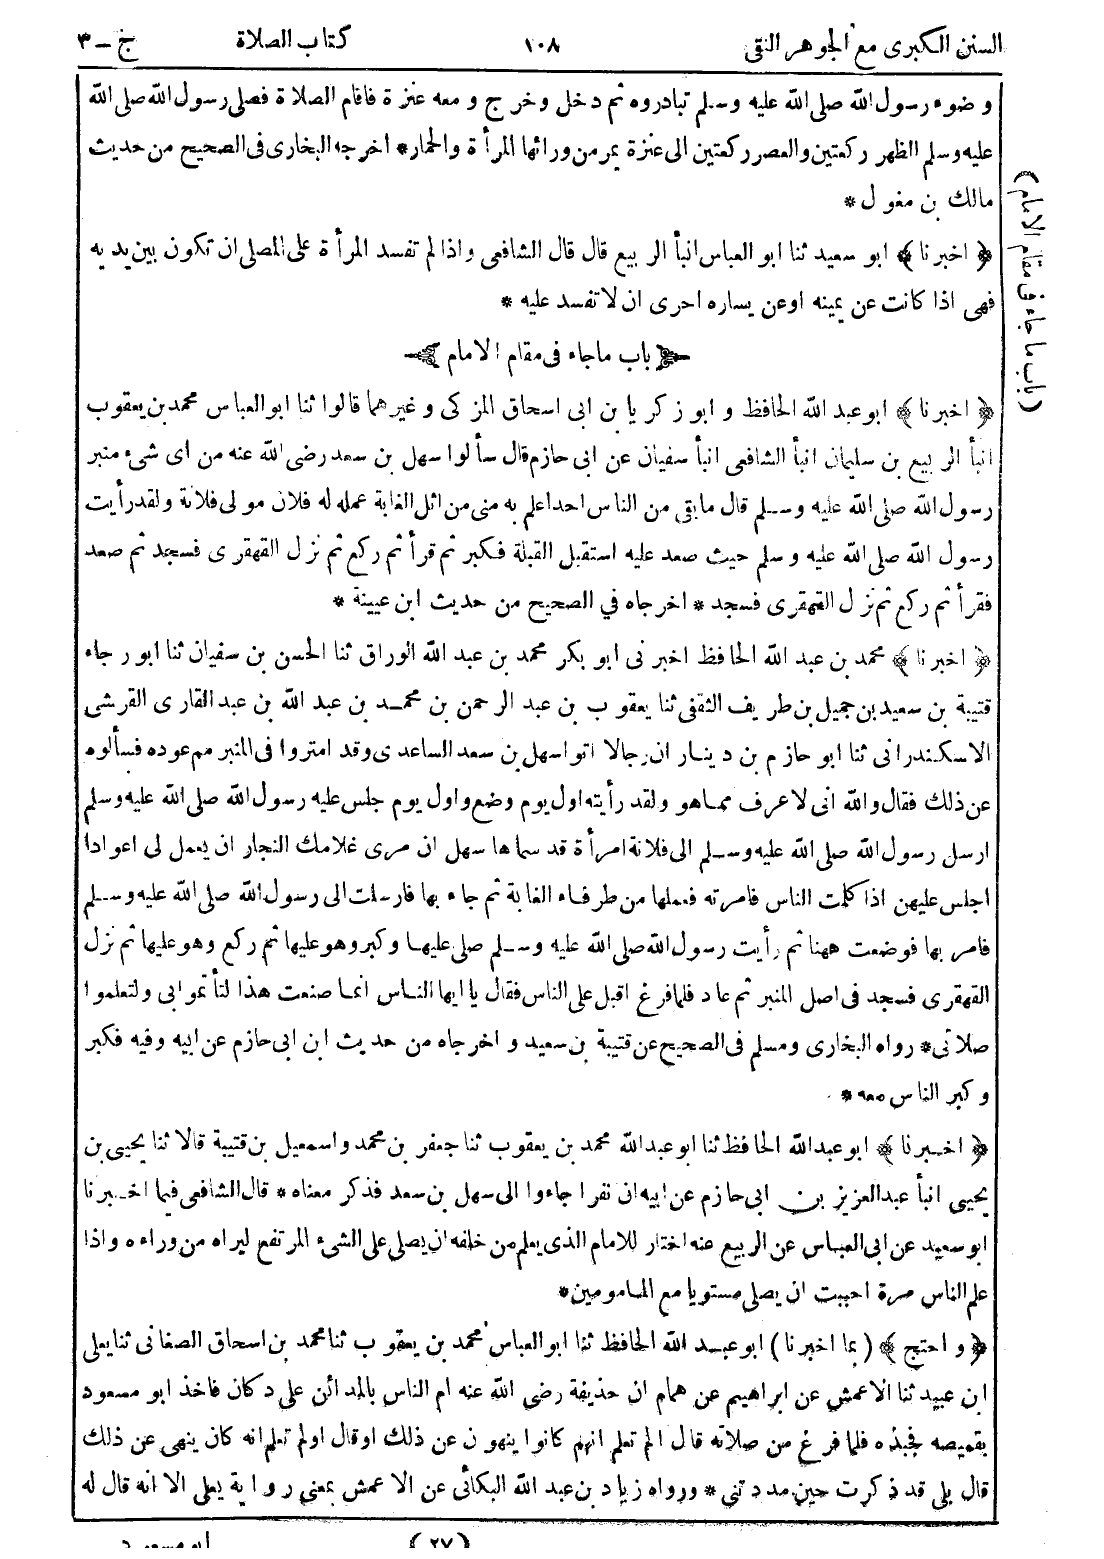 السنن الكبرى مع الجوهر النقى ١٠٨ كتاب الصلاة ج - ٣
وضوء رسول الله صلى الله عليه وسلم تبادروه ثم دخل وخرج ومعه عنزة فاقام الصلاة فصلى رسول الله صلى الله
عليه وسلم الظهر ركعتين والعصر ركعتين الى عنزة يمر من ورائها المرأة والحمار* اخرجه البخارى فى الصحيح من حديث
مالك بن مغول *
﴿ اخبرنا ﴾ ابو سعيد ثنا ابو العباس انبأ الربيع قال قال الشافعى واذا لم تفسد المرأة على المصلى ان تكون بين يديه
فهى اذا كانت عن يمينه اوعن يساره احرى ان لا تفسد عليه *
﴿ باب ماجاء فى مقام الامام ﴾
﴿ اخبرنا ﴾ ابو عبد الله الحافظ و ابو زكريا بن ابى اسحاق المزكى وغيرهما قالوا ثنا ابو العباس محمد بن يعقوب
انبأ الربيع بن سليمان انبأ الشافعى انبأ سفيان عن ابى حازم قال سألوا سهل بن سعد رضى الله عنه من اى شىء منبر
رسول الله صلى الله عليه وسلم قال مابقى من الناس احد اعلم به منى من اثل الغابة عمله له فلان مولى فلانة ولقد رأيت
رسول الله صلى الله عليه وسلم حيث صعد عليه استقبل القبلة فكبر ثم قرأ ثم ركع ثم نزل القهقرى فسجد ثم صعد
فقرأ ثم ركع ثم نزل القهقرى فسجد * اخرجاه في الصحيح من حديث ابن عيينة *
﴿ اخبرنا ﴾ محمد بن عبد الله الحافظ اخبرنى ابو بكر محمد بن عبد الله الوراق ثنا الحسن بن سفيان ثنا ابو رجاء
قتيبة بن سعيد بن جميل بن طريف الثقفى ثنا يعقوب بن عبد الرحمن بن محمد بن عبد الله بن عبد القارى القرشى
الاسكندرانى ثنا ابو حازم بن دينار ان رجالا اتوا سهل بن سعد الساعدى وقد امتروا فى المنبر مم عوده فسألوه
عن ذلك فقال والله انى لاعرف مما هو ولقد رأيته اول يوم وضع واول يوم جلس عليه رسول الله صلى الله عليه وسلم
ارسل رسول الله صلى الله عليه وسلم الى فلانة امرأة قد سماها سهل ان مرى غلامك النجار ان يعمل لى اعوادا
اجلس عليهن اذا كلمت الناس فامرته فعملها من طرفاء الغابة ثم جاء بها فارسلت الى رسول الله صلى الله عليه وسلم
فامر بها فوضعت ههنا ثم رأيت رسول الله صلى الله عليه وسلم صلى عليها وكبر وهو عليها ثم ركع وهو عليها ثم نزل
القهقرى فسجد فى اصل المنبر ثم عاد فلما فرغ اقبل على الناس فقال يا ايها الناس انما صنعت هذا لتأتموا بى ولتعلموا
صلاتى* رواه البخارى ومسلم فى الصحيح عن قتيبة بن سعيد و اخرجاه من حديث ابن ابى حازم عن ابيه وفيه فكبر
وكبر الناس معه *
﴿ اخبرنا ﴾ ابو عبدالله الحافظ ثنا ابو عبدالله محمد بن يعقوب ثنا جعفر بن محمد واسمعيل بن قتيبة قالا ثنا يحيى بن
يحيى انبأ عبدالعزيز بن ابى حازم عن ابيه ان نفرا جاءوا الى سهل بن سعد فذكر معناه * قال الشافعى فيما اخبرنا
ابو سعيد عن ابى العباس عن الربيع عنه اختار للامام الذى يعلم من خلفه ان يصلى على الشىء المرتفع ليراه من وراءه واذا
علم الناس مرة احببت ان يصلى مستويا مع المامومين*
﴿ و احتج ﴾ ( بما اخبرنا ) ابو عبد الله الحافظ ثنا ابو العباس محمد بن يعقوب ثنا محمد بن اسحاق الصغانى ثنا يعلى
ابن عبيد ثنا الاعمش عن ابراهيم عن همام ان حذيفة رضى الله عنه ام الناس بالمدائن على دكان فاخذ ابو مسعود
بقميصه فجبذه فلما فرغ من صلاته قال الم تعلم انهم كانوا ينهون عن ذلك اوقال اولم تعلم انه كان ينهى عن ذلك
قال بلى قد ذكرت حين مددتنى * ورواه زياد بن عبد الله البكائى عن الاعمش بمعنى رواية يعلى الا انه قال له
ابو مسعود (٢٧)
(باب ما جاء فى مقام الامام)